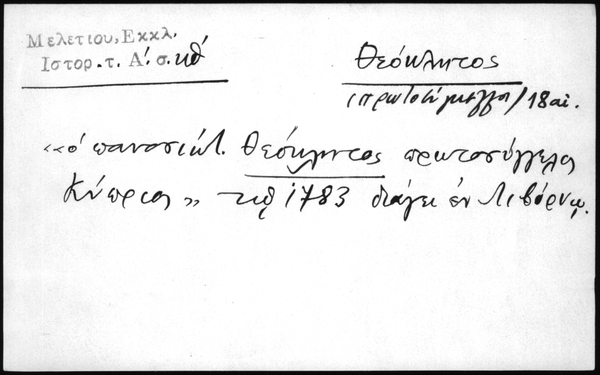 Μελετίου, Εκκλ.
Ιστορ. τ. Α'. σ. κθ'
Θεόκλητος
(πρωτοσύγκελλος / 18 αι.
«ὁ πανοσιώτ. Θεόκλητος πρωτοσύγγελος
Κύπριος» τῷ 1783 διάγει ἐν Λιβόρνῳ.